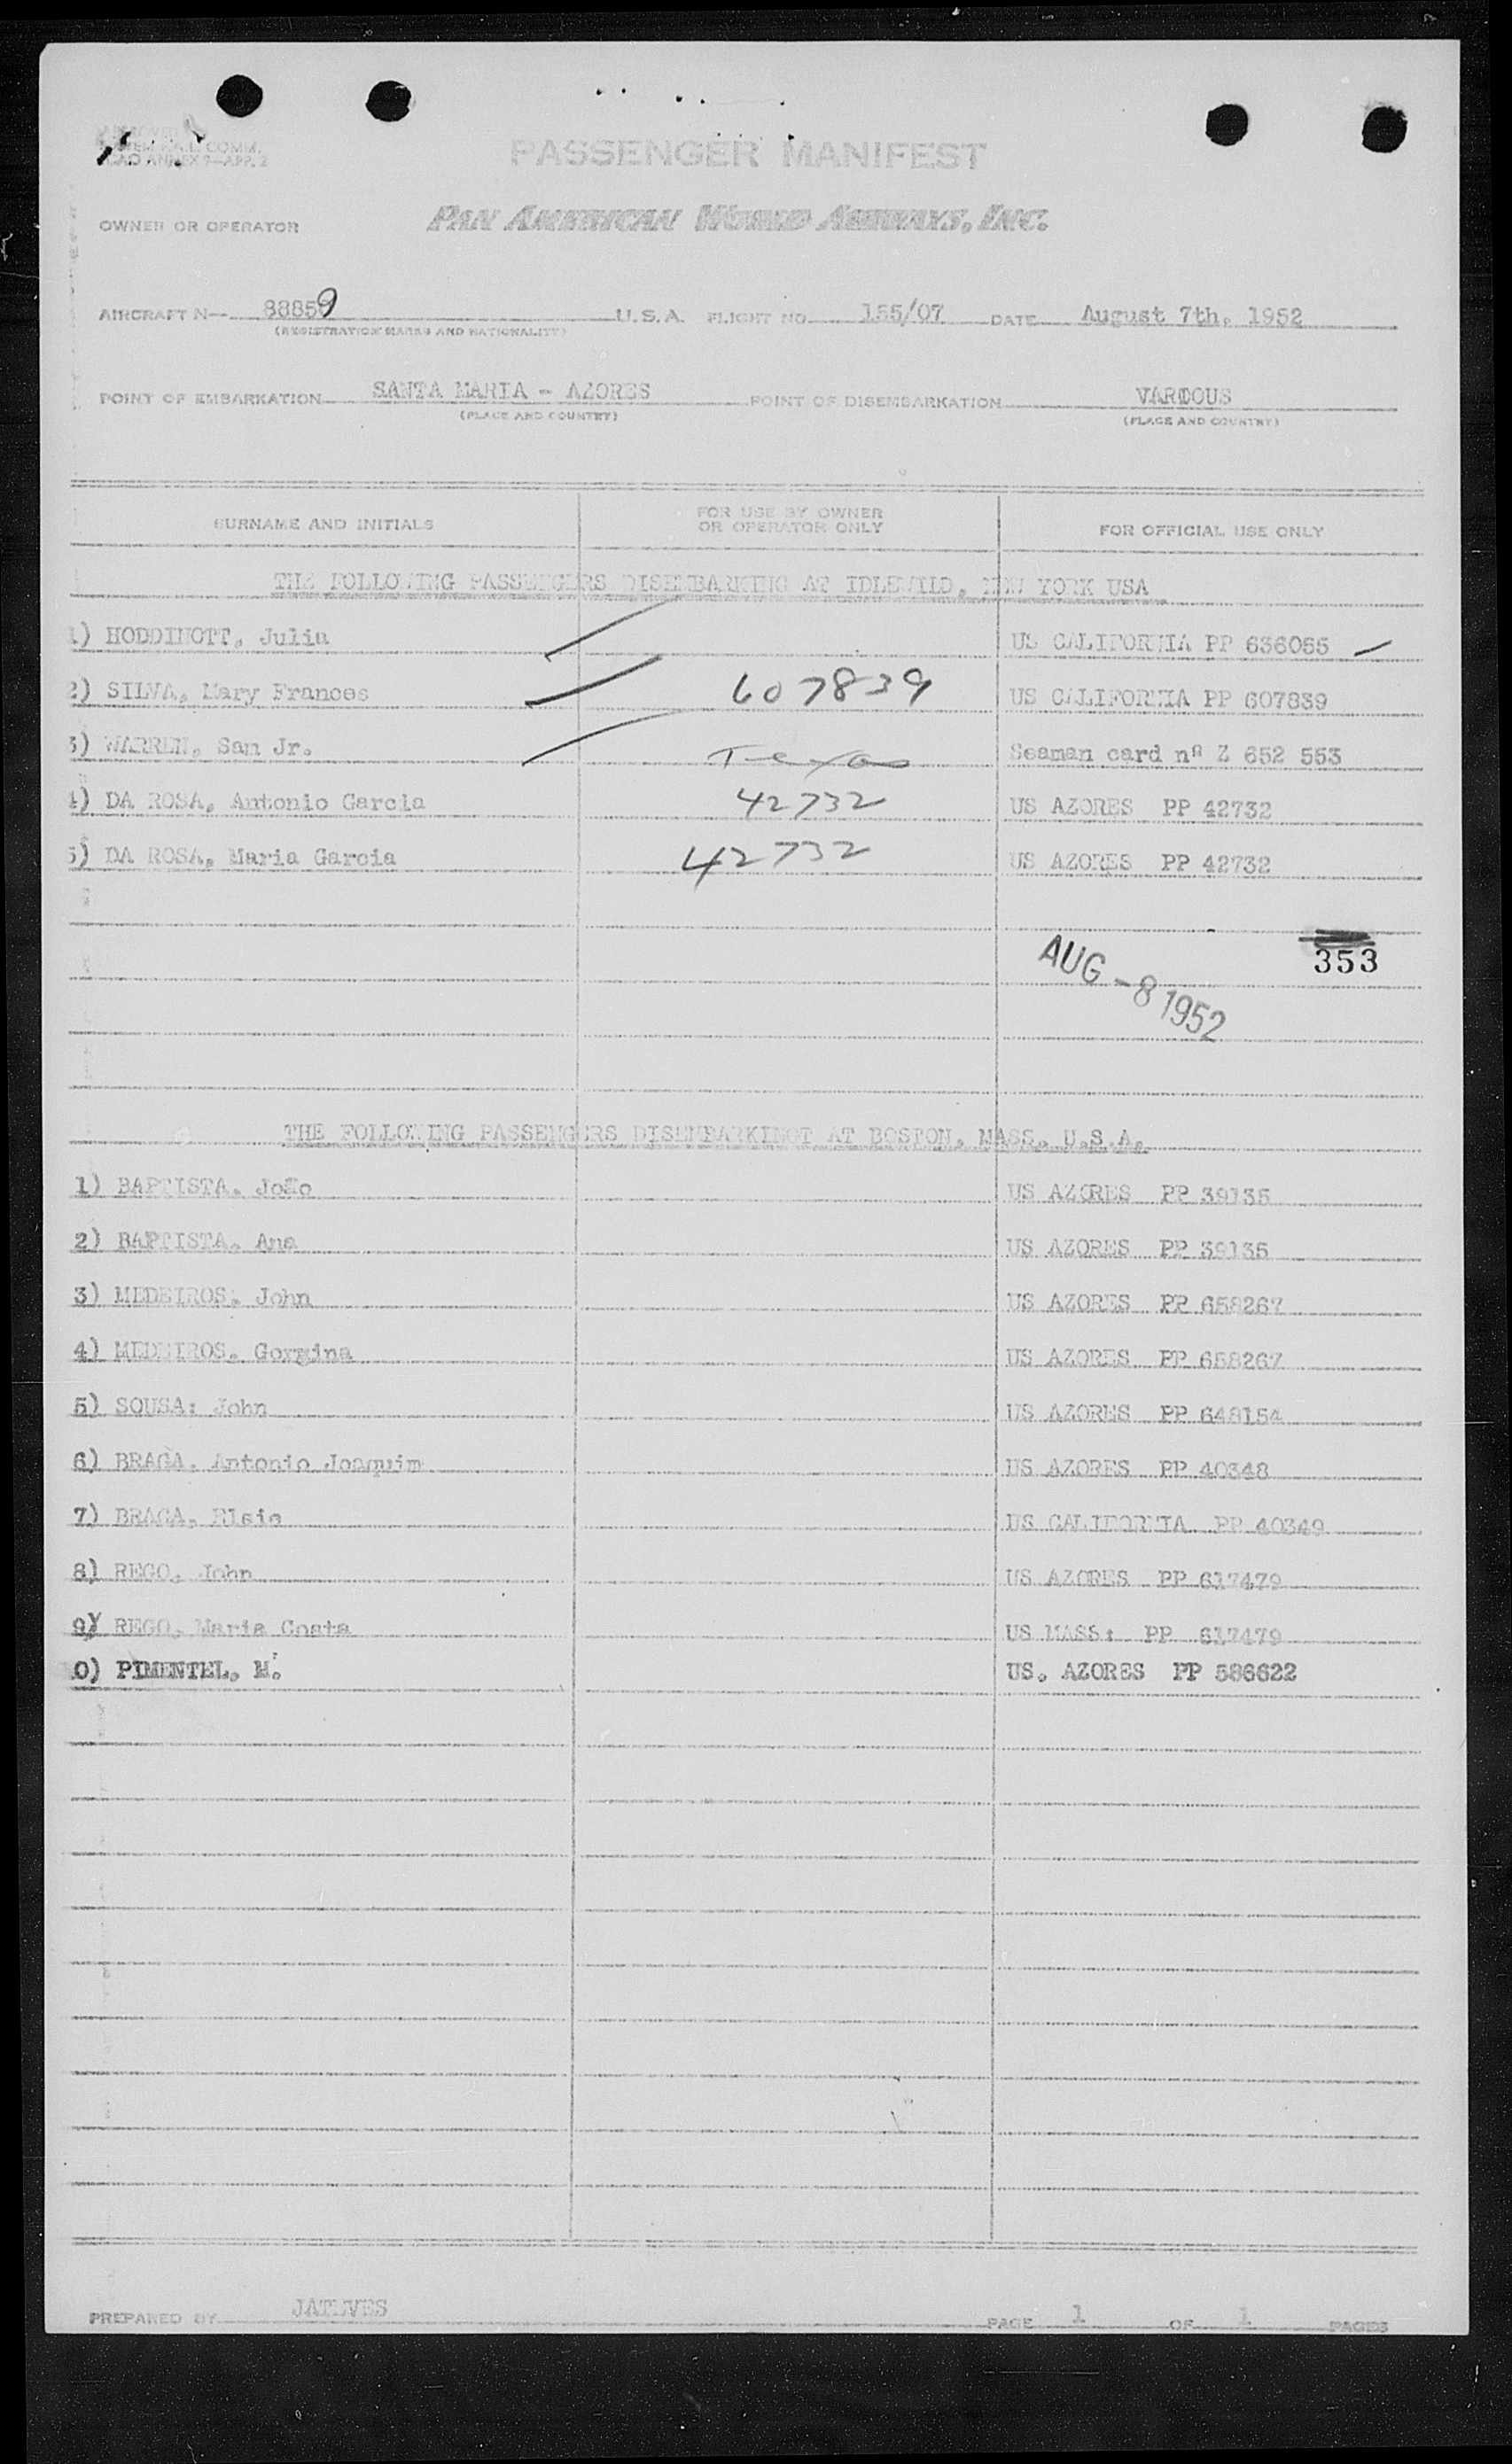 APPROVED
COMM.
ICAO ANNEX 9—APP. 2
PASSENGER MANIFEST
OWNER OR OPERATOR PAN AMERICAN WORLD AIRWAYS, INC.
AIRCRAFT N— 88859 U.S.A. FLIGHT NO. 155/07 DATE August 7th, 1952
(REGISTRATION MARKS AND NATIONALITY)
POINT OF EMBARKATION SANTA MARIA - AZORES POINT OF DISEMBARKATION VARIOUS
(PLACE AND COUNTRY) (PLACE AND COUNTRY)
SURNAME AND INITIALS FOR USE BY OWNER OR OPERATOR ONLY FOR OFFICIAL USE ONLY
THE FOLLOWING PASSENGERS DISEMBARKING AT IDLEWILD, NEW YORK USA
1) HODDINOTT, Julia US CALIFORNIA PP 636065
2) SILVA, Mary Frances 607839 US CALIFORNIA PP 607839
3) WARREN, San Jr. Texas Seaman card nº Z 652 553
4) DA ROSA, Antonio Garcia 42732 US AZORES PP 42732
5) DA ROSA, Maria Garcia 42732 US AZORES PP 42732
353
AUG -8 1952
THE FOLLOWING PASSENGERS DISEMBARKINGT AT BOSTON, MASS. U.S.A.
1) BAPTISTA, João US AZORES PP 39135
2) BAPTISTA, Ana US AZORES PP 39135
3) MEDEIROS, John US AZORES PP 658267
4) MEDEIROS, Gorgina US AZORES PP 658267
5) SOUSA: John US AZORES PP 648154
6) BRAGA, Antonio Joaquim US AZORES PP 40348
7) BRAGA, Elsie US CALIFORNIA PP 40349
8) REGO, John US AZORES PP 617479
9) REGO, Maria Costa US MASS: PP 617479
0) PIMENTEL, M. US. AZORES PP 586622
PREPARED BY JATEVES PAGE 1 OF 1 PAGES